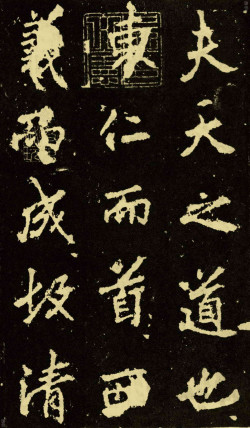 夫天之道也
東仁而首西
義而成故清